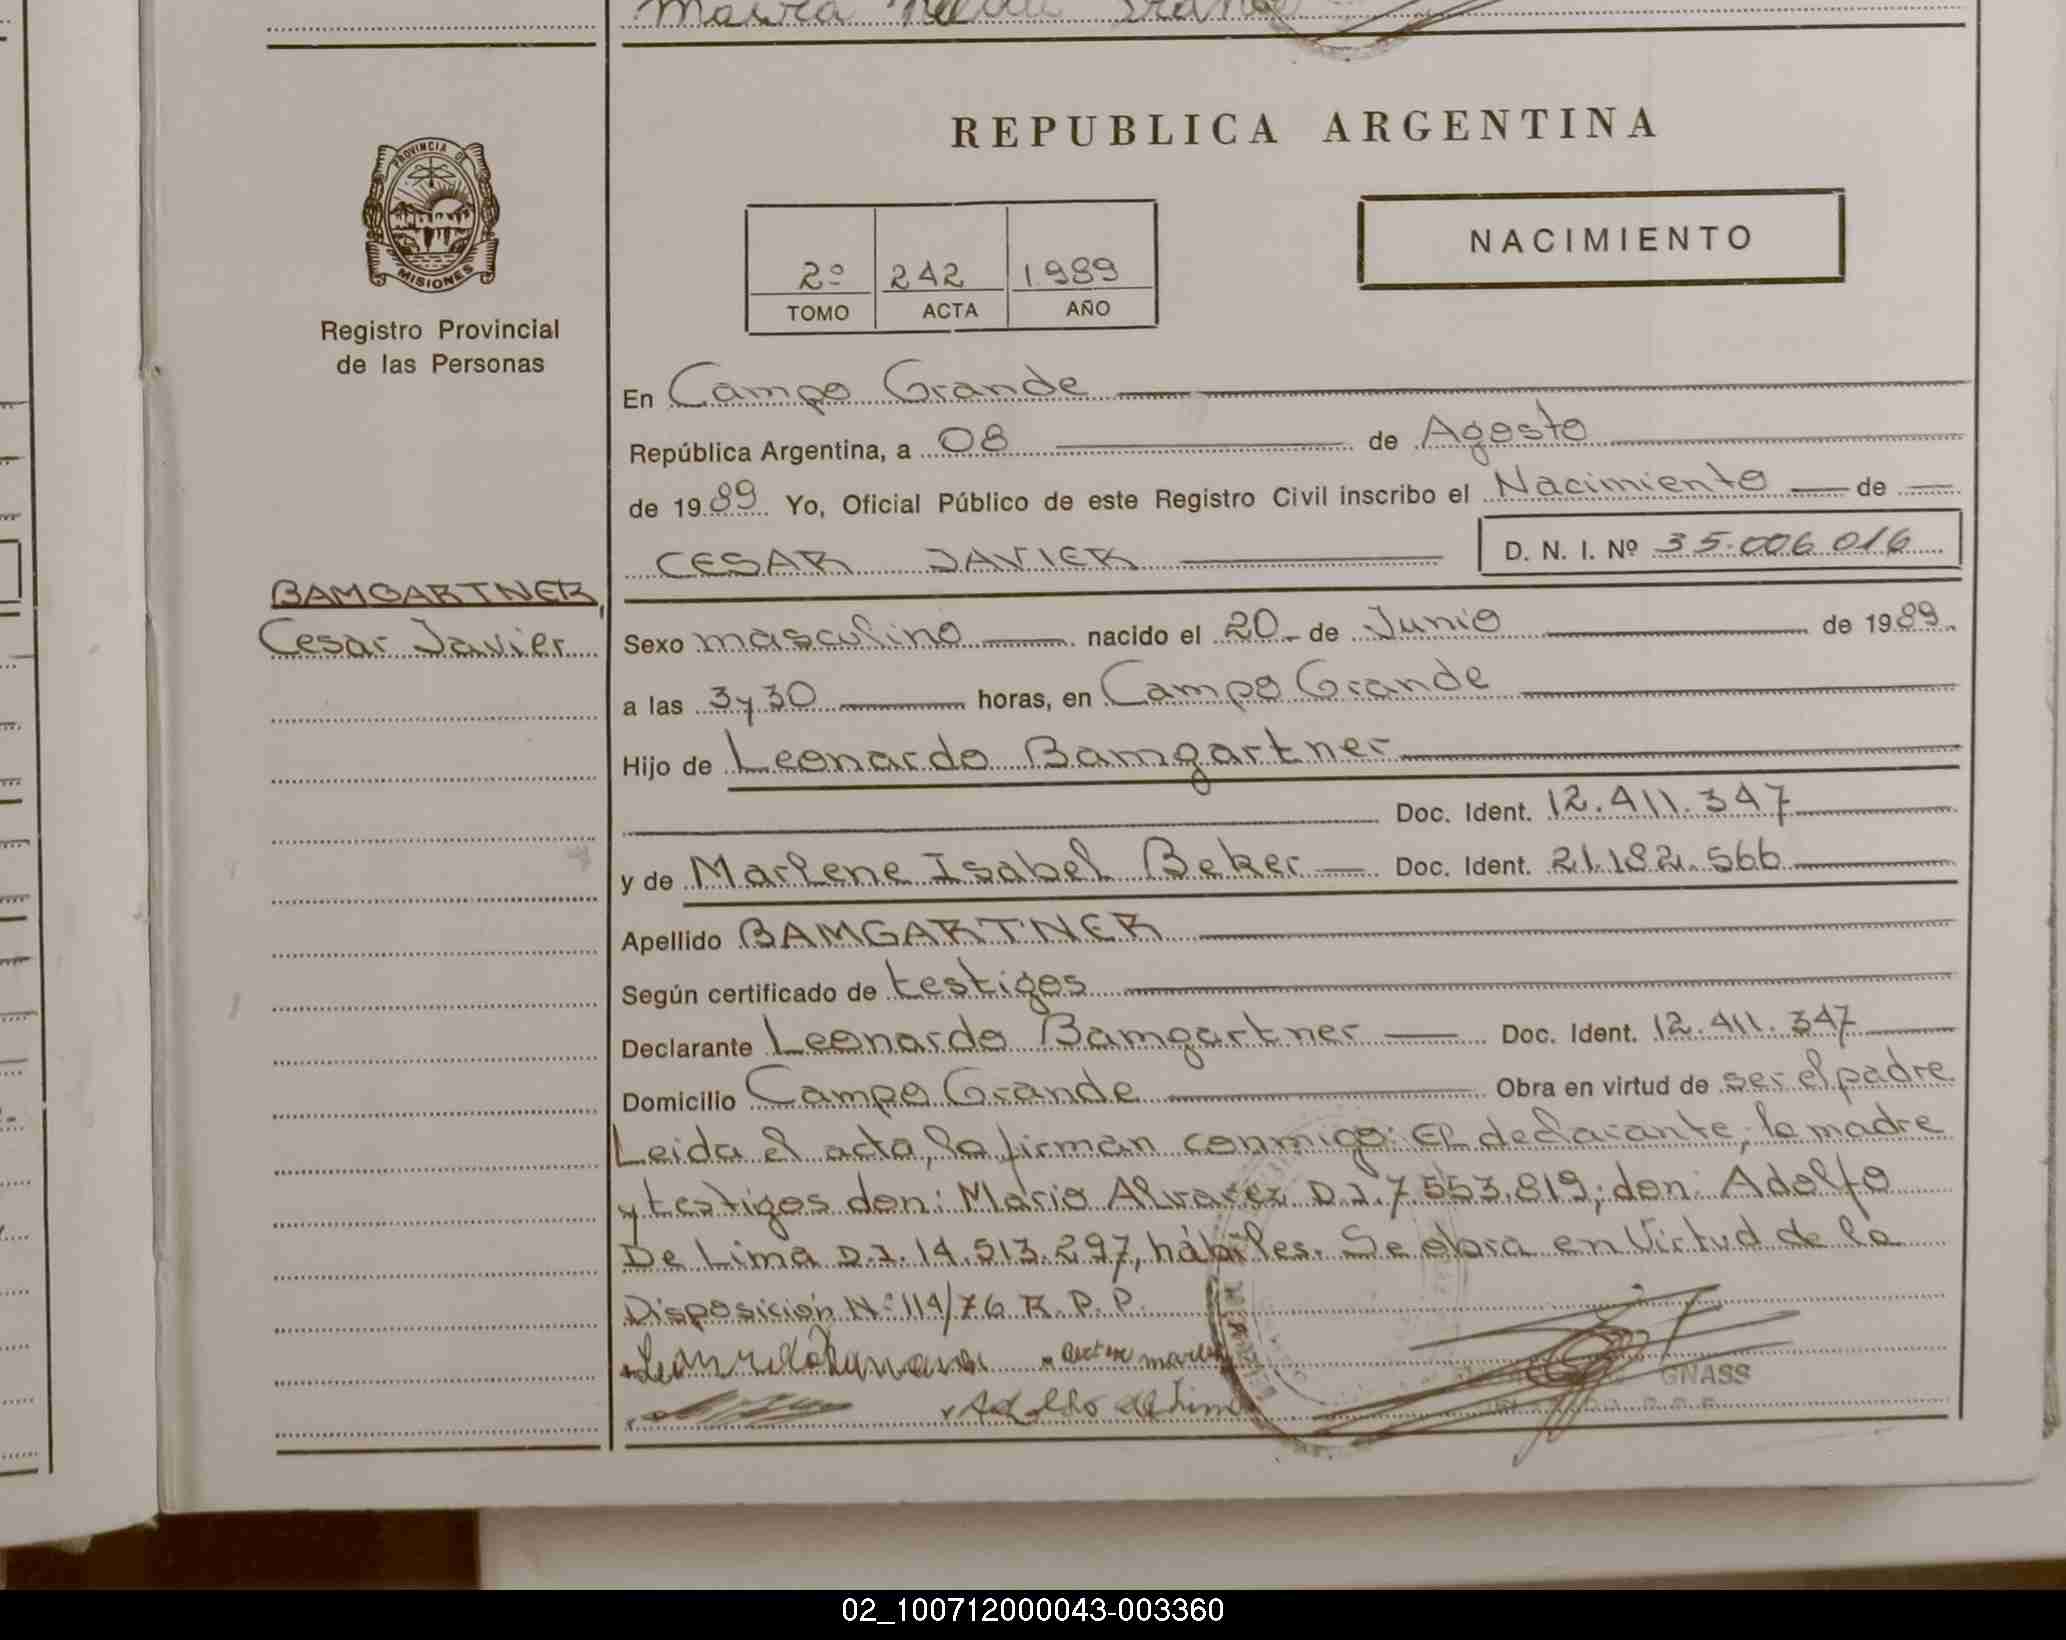 REPUBLICA ARGENTINA
PROVINCIA DE
MISIONES
Registro Provincial
de las Personas
NACIMIENTO
2º 242 1989
TOMO ACTA AÑO
En Campo Grande
República Argentina, a 08 de Agosto
de 1989 Yo, Oficial Público de este Registro Civil inscribo el Nacimiento de
CESAR JAVIER D. N. I. Nº 35.006.016
BAMGARTNER,
Cesar Javier
Sexo masculino nacido el 20 de Junio de 1989
a las 3 y 30 horas, en Campo Grande
Hijo de Leonardo Bamgartner
Doc. Ident. 12.411.347
y de Marlene Isabel Beker Doc. Ident. 21.182.566
Apellido BAMGARTNER
Según certificado de testigos
Declarante Leonardo Bamgartner Doc. Ident. 12.411.347
Domicilio Campo Grande Obra en virtud de ser el padre
Leida el acta, la firman conmigo: El declarante, la madre
y testigos don: Mario Alvarez D.I. 7.553.819; don: Adolfo
De Lima D.I. 14.513.297, hábiles. Se obra en Virtud de la
Disposición Nº 114/76 R.P.P.
Adolfo de Lima
GNASS
02_100712000043-003360